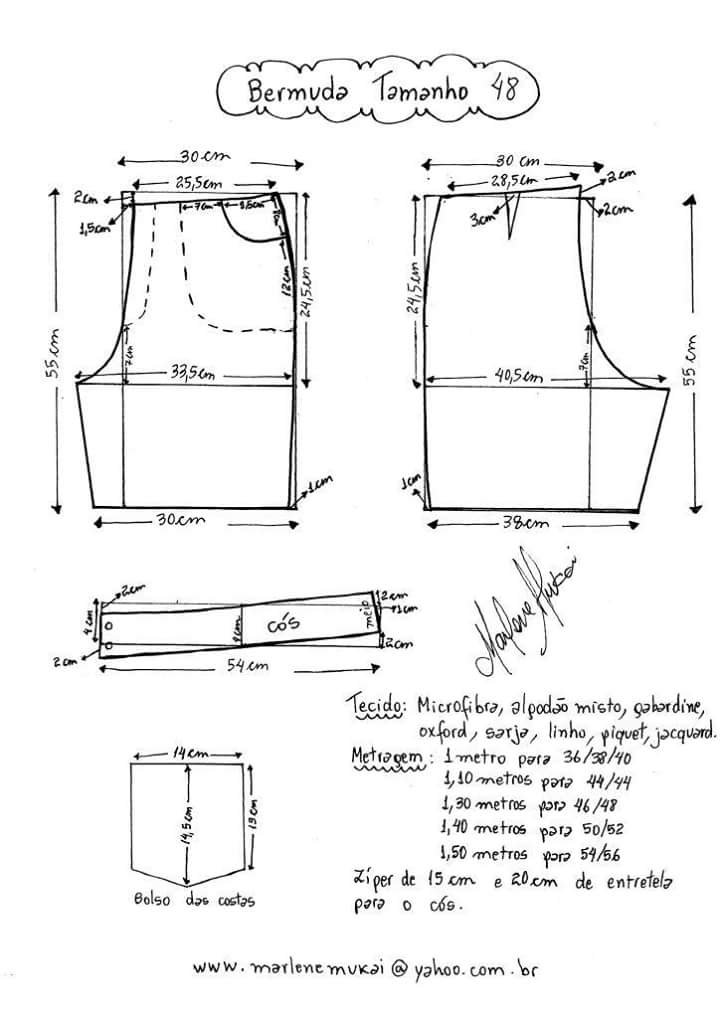 Bermuda Tamanho 48
30cm
25,5cm
2cm
1,5cm
7cm
12cm
24,5cm
55cm
33,5cm
7cm
1cm
30cm
30 cm
28,5cm
2cm
3cm
2cm
24,5cm
55cm
40,5cm
7cm
1cm
38cm
2cm
12cm
1cm
4cm
cós
meio
2cm
2cm
54cm
Marlene Mukai
Tecido: Microfibra, algodão misto, gabardine,
oxford, sarja, linho, piquet, jacquard.
Metragem: 1 metro para 36/38/40
1,10 metros para 44/44
1,30 metros para 46/48
1,40 metros para 50/52
1,50 metros para 54/56
Zíper de 15 cm e 20cm de entretela
para o cós.
14cm
14,5cm
13cm
Bolso das costas
www.marlenemukai@yahoo.com.br